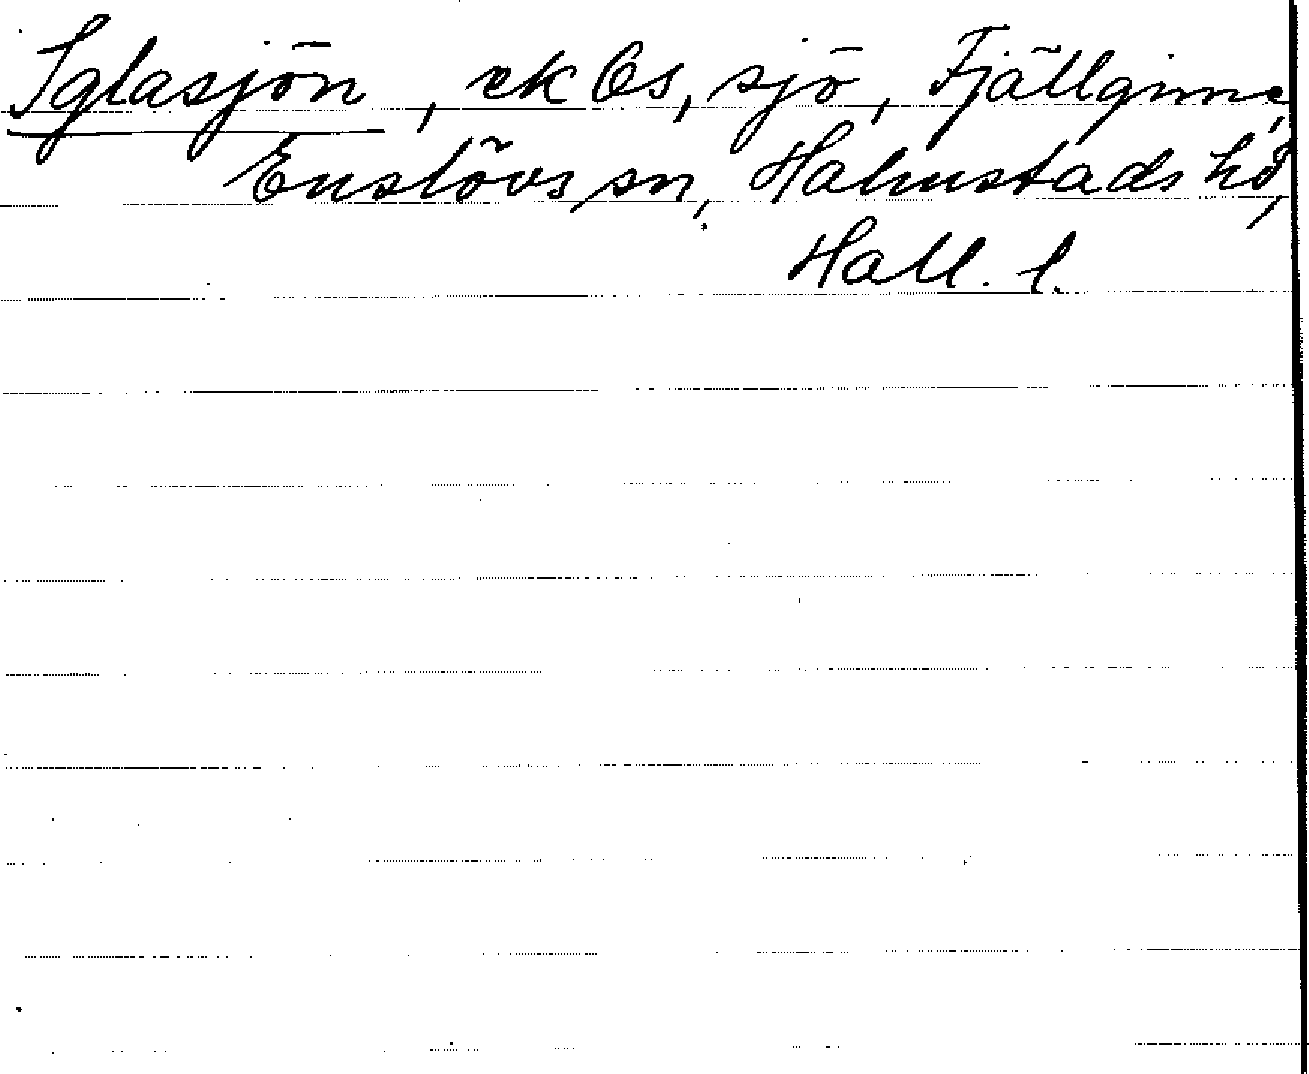 Iglasjön, ek bs, sjö, Fjällginne,
Enslövs sn, Halmstads hd,
Hall. l.